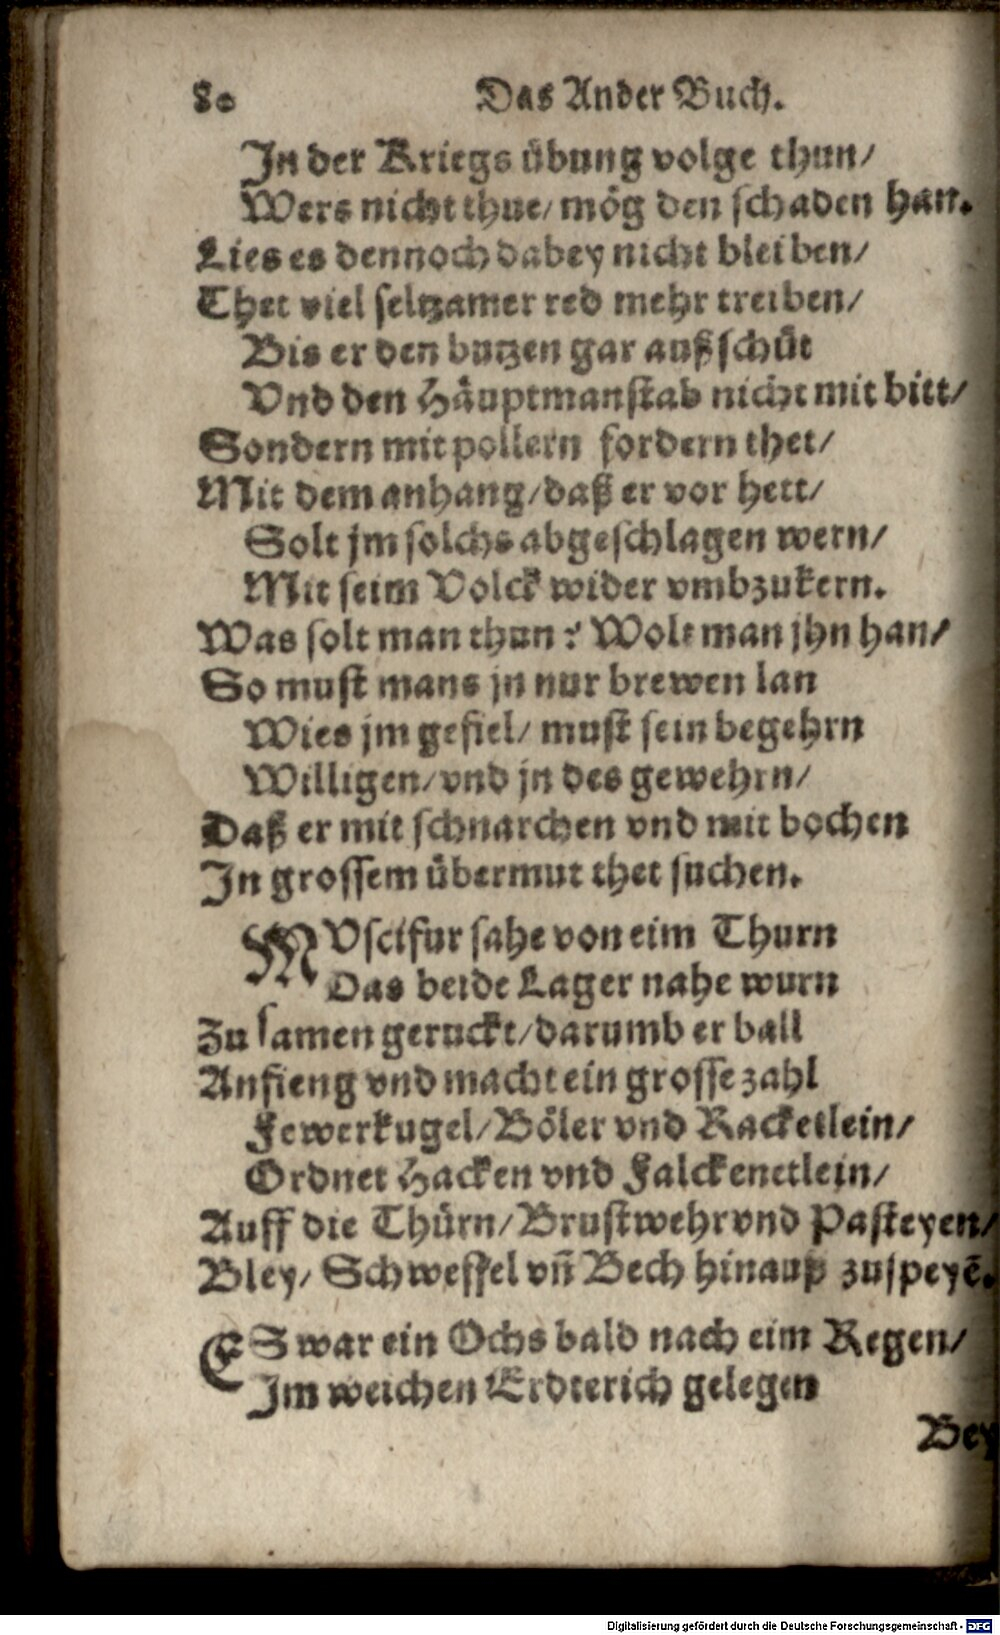 80 Das Ander Buch.
In der Kriegs übung volge thun/
Wers nicht thue/ mög den schaden han.
Lies es dennoch dabey nicht bleiben/
Thet viel seltzamer red mehr treiben/
Bis er den butzen gar außschüt
Vnd den Häuptmanstab nicht mit bitt/
Sondern mit pollern fordern thet/
Mit dem anhang/ daß er vor hett/
Solt jm solchs abgeschlagen wern/
Mit seim Volck wider vmbzukern.
Was solt man thun? Wolt man jhn han/
So must mans jn nur brewen lan
Wies jm gefiel/ must sein begehrn
Willigen/ vnd jn des gewehrn/
Daß er mit schnarchen vnd mit bochen
In grossem übermut thet suchen.
MVscifur sahe von eim Thurn
Das beide Lager nahe wurn
Zu samen geruckt/ darumb er ball
Anfieng vnd macht ein grosse zahl
Fewerkugel/ Böler vnd Racketlein/
Ordnet Hacken vnd Falckenetlein/
Auff die Thürn/ Brustwehr vnd Pasteyen/
Bley/ Schweffel vñ Bech hinauß zuspeyē.
ES war ein Ochs bald nach eim Regen/
Im weichen Erdterich gelegen
Bey
Digitalisierung gefördert durch die Deutsche Forschungsgemeinschaft - DFG